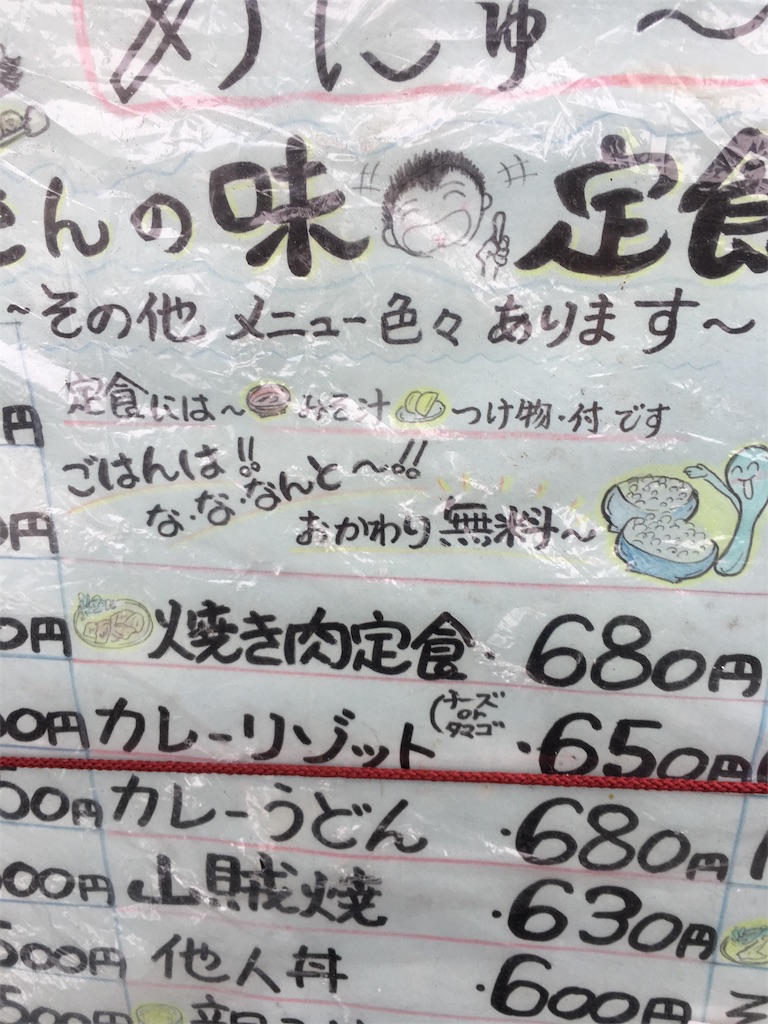 めにゅ～
さんの味 定食
～その他 メニュー色々 あります～
定食には～ みそ汁 つけ物・付です
ごはんは!!
な・な・なんと～!!
おかわり無料～
円
0円
0円 焼き肉定食・680円
00円 カレーリゾット(チーズ or タマゴ・650円
50円 カレーうどん・680円
600円 山賊焼・630円
500円 他人丼・600円
500円